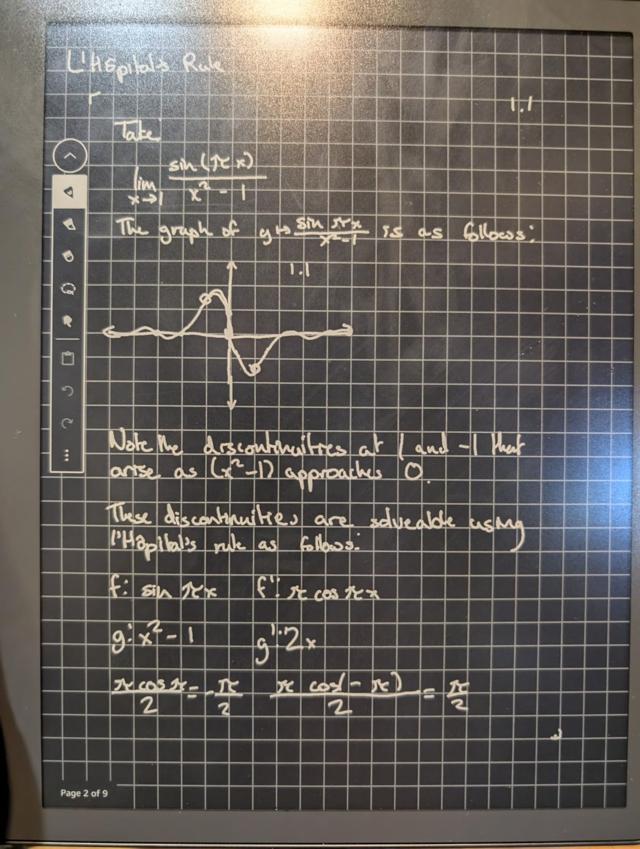 L'Hôpital's Rule
1.1
Take
lim x→1 sin(πx) / x² - 1
The graph of y ↦ sin πx / x²-1 is as follows:
1.1
Note the discontinuities at 1 and -1 that
arise as (x²-1) approaches 0.
These discontinuities are solveable using
l'Hôpital's rule as follows:
f: sin πx f': π cos πx
g: x² - 1 g': 2x
π cos π / 2 = -π / 2 π cos(-π) / 2 = π / 2
Page 2 of 9